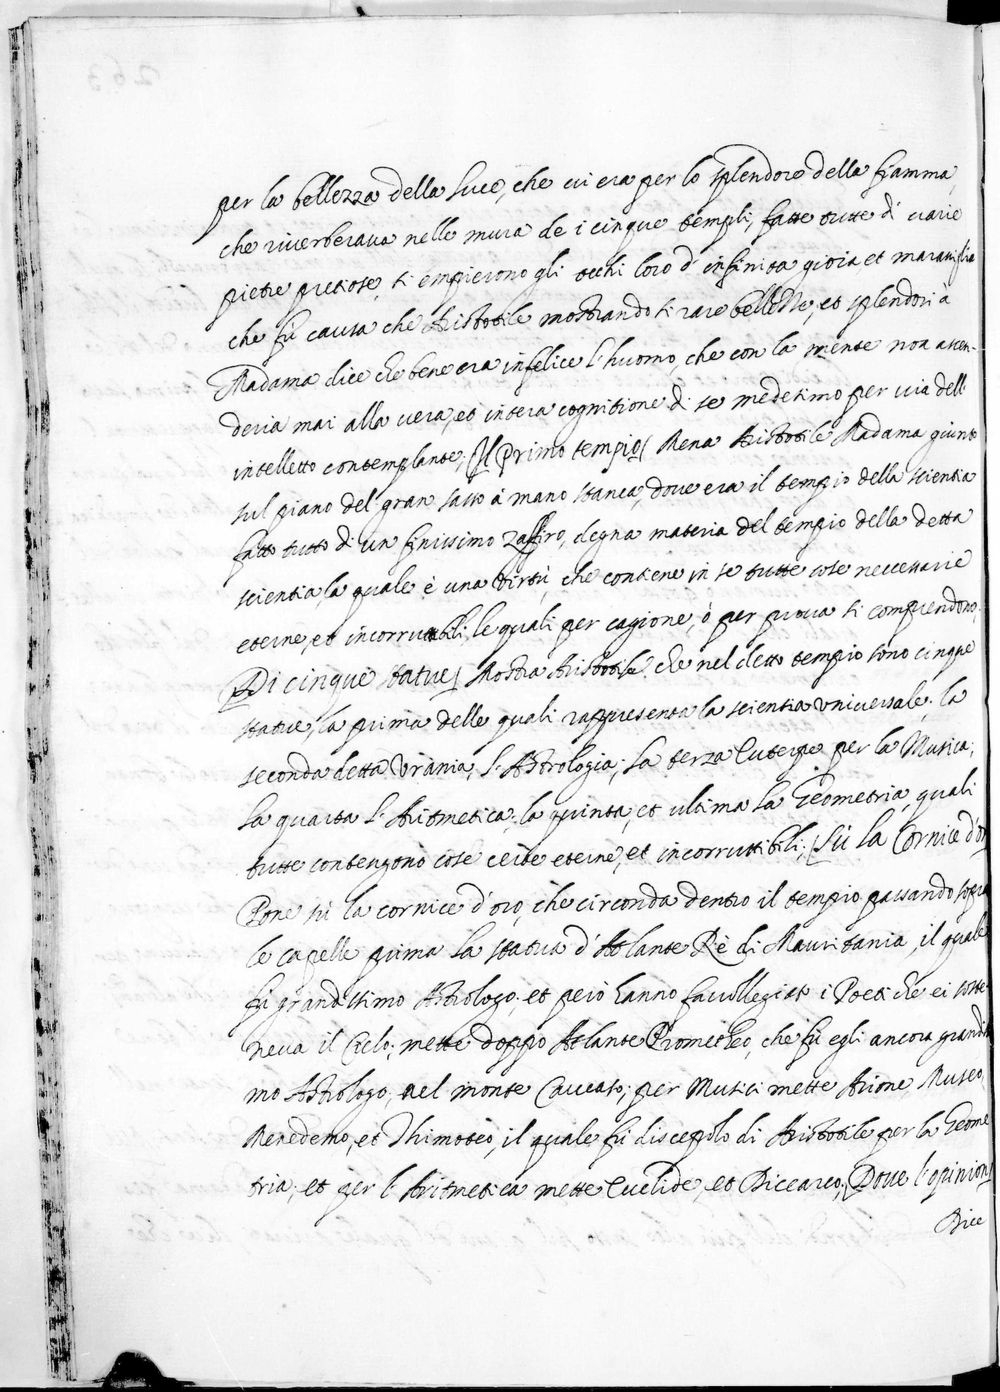 per la bellezza della luce, che vi era per lo splendore della fiamma,
che riverberava nelle mura de i cinque tempii, fatte tutte di varie
pietre pretiose, si empierono gli occhi loro d' infinita gioia et maraviglia
che fù causa che Aristotile mostrando sì rare bellezze, et splendori à
Madama dice che bene era infelice l' huomo, che con la mente non ascen-
deria mai alla vera, et intera cognitione di se medesimo per via dell'
intelletto contemplante; Il primo tempio[ Mena Aristotile Madama giunto
sul piano del gran sasso à mano stanca, dove era il tempio della scientia
fatto tutto di un finissimo zaffiro, degna materia del tempio della detta
scientia, la quale è una virtù, che contiene in se tutte cose necessarie
eterne, et incorruttibili, le quali per cagione, ò per prova si comprendono.
Di cinque statue[ Mostra Aristotile che nel detto tempio sono cinque
statue, la prima delle quali rappresenta la scientia universale; la
seconda detta Urania, l' Astrologia; la terza Euterpe per la Musica;
la quarta l' Aritmetica; la quinta, et ultima la Geometria, quali
tutte contengono cose certe eterne, et incorruttibili; [Sù la Cornice d'oro
Pone sù la cornice d'oro, che circonda dentro il tempio passando sopra
le capelle prima la statua d' Atlante Rè di Mauritania, il quale
fù grandissimo Astrologo; et però hanno favolleggiato i Poeti che ei soste-
neva il Cielo; mette doppo Atlante Prometheo, che fù egli ancora grandissi
mo Astrologo, nel monte Caucaso; per Musici mette Arione, Museo,
Menedemo, et Thimoteo, il quale fù discepolo di Aristotile per la Geome
tria; et per l' Aritmetica mette Euclide, et Dicearco; [Dove l' opinion[
Dice